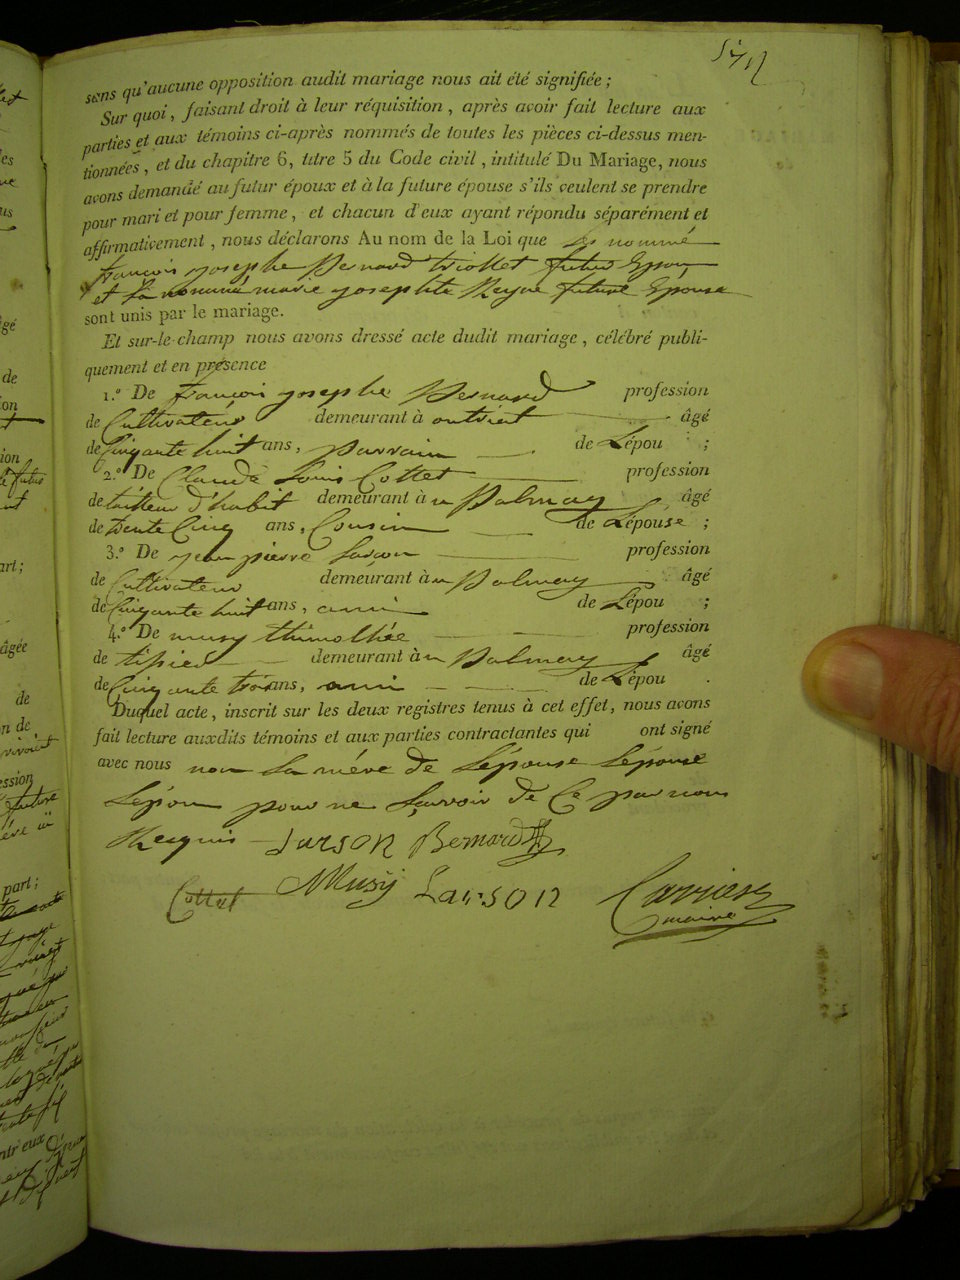 sens qu'aucune opposition audit mariage nous ait été signifiée ;
Sur quoi, faisant droit à leur réquisition, après avoir fait lecture aux
parties et aux témoins ci-après nommés de toutes les pièces ci-dessus men-
tionnées, et du chapitre 6, titre 5 du Code civil, intitulé Du Mariage, nous
avons demandé au futur époux et à la future épouse s'ils veulent se prendre
pour mari et pour femme, et chacun d'eux ayant répondu séparément et
affirmativement, nous déclarons Au nom de la Loi que les nommé
françois josephe Bernard triollet futur Epou
et la nommé marie josephte future Epouse
sont unis par le mariage.
Et sur-le-champ nous avons dressé acte dudit mariage, célébré publi-
quement et en présence
1.° De françois josephe Bernard profession
de Cultivateur demeurant à ontriat âgé
de Cinqante huit ans, parrain de Lépou ;
2.° De Claude Louis Cottet profession
de tailleur d'habit demeurant à Palmay âgé
de trente Cinq ans, Cousin de Lépouse ;
3.° De jean pierre profession
de Cultivateur demeurant à Palmay âgé
de Cinqante huit ans, ami de Lépou ;
4.° De musy thimothée profession
de demeurant à Palmay âgé
de Cinqante trois ans, ami de Lépou .
Duquel acte, inscrit sur les deux registres tenus à cet effet, nous avons
fait lecture auxdits témoins et aux parties contractantes qui ont signé
avec nous non La mére de Lépouse Lépouse
Lépou pour ne Savoir de Ce par nous
Requis Larson Bernard
Cottet Musÿ Larson Carrier
maire